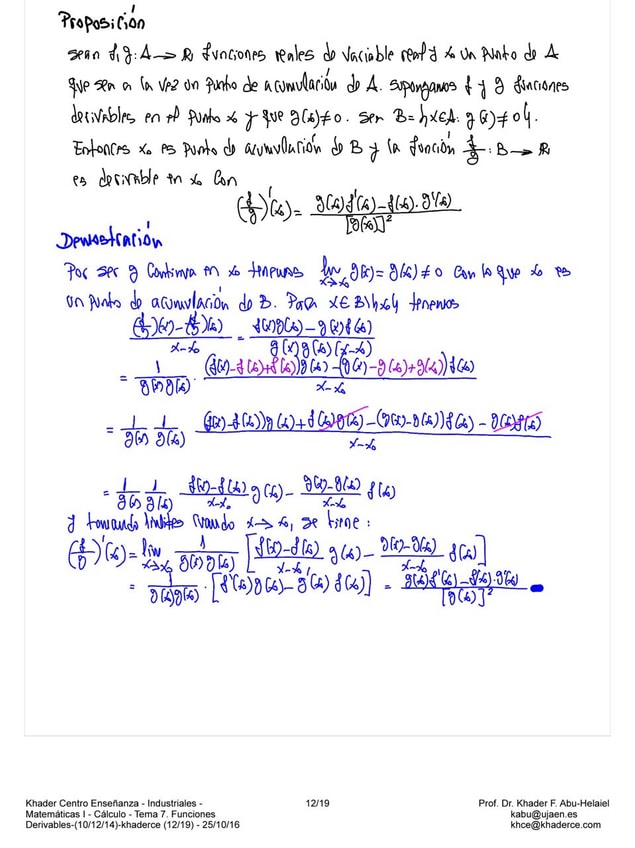 Proposición
Sean f,g: A → ℝ funciones reales de variable real y x₀ un punto de A
que sea a la vez un punto de acumulación de A. Supongamos f y g funciones
derivables en el punto x₀ y que g(x₀)≠0. Sea B={x∈A: g(x)≠0}.
Entonces x₀ es punto de acumulación de B y la función f/g : B → ℝ
es derivable en x₀ con
(f/g)'(x₀) = (g(x₀)f'(x₀) − f(x₀)·g'(x₀)) / [g(x₀)]²
Demostración
Por ser g continua en x₀ tenemos lim x→x₀ g(x) = g(x₀) ≠ 0 con lo que x₀ es
un punto de acumulación de B. Para x∈B\{x₀} tenemos
((f/g)(x) − (f/g)(x₀)) / (x−x₀) = (f(x)g(x₀) − g(x)f(x₀)) / (g(x)g(x₀)(x−x₀))
= 1/(g(x)g(x₀)) · ((f(x)−f(x₀)+f(x₀))g(x₀) − (g(x)−g(x₀)+g(x₀))f(x₀)) / (x−x₀)
= 1/g(x) 1/g(x₀) ((f(x)−f(x₀))g(x₀) + f(x₀)g(x₀) − (g(x)−g(x₀))f(x₀) − g(x₀)f(x₀)) / (x−x₀)
= 1/g(x) 1/g(x₀) (f(x)−f(x₀))/(x−x₀) g(x₀) − (g(x)−g(x₀))/(x−x₀) f(x₀)
y tomando límites cuando x→x₀, se tiene:
(f/g)'(x₀) = lim x→x₀ 1/(g(x)g(x₀)) [(f(x)−f(x₀))/(x−x₀) g(x₀) − (g(x)−g(x₀))/(x−x₀) f(x₀)]
= 1/(g(x₀)g(x₀)) · [f'(x₀)g(x₀) − g'(x₀) f(x₀)] = (g(x₀)f'(x₀) − f(x₀)·g'(x₀)) / [g(x₀)]²
Khader Centro Enseñanza - Industriales -
Matemáticas I - Cálculo - Tema 7. Funciones
Derivables-(10/12/14)-khaderce (12/19) - 25/10/16
12/19
Prof. Dr. Khader F. Abu-Helaiel
kabu@ujaen.es
khce@khaderce.com